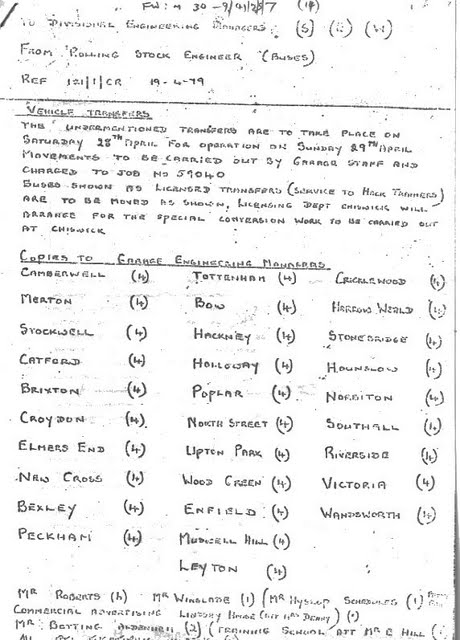 TO DIVISIONAL ENGINEERING MANAGERS (S) (E) (W)
FROM ROLLING STOCK ENGINEER (BUSES)
REF 121/1/CR 19-4-79
VEHICLE TRANSFERS
THE UNDERMENTIONED TRANSFERS ARE TO TAKE PLACE ON
SATURDAY 28TH APRIL FOR OPERATION ON SUNDAY 29TH APRIL
MOVEMENTS TO BE CARRIED OUT BY GARAGE STAFF AND
CHARGED TO JOB NO 59040
BUSES SHOWN AS LICENSED TRANSFERS (SERVICE TO HACK TRAINERS)
ARE TO BE MOVED AS SHOWN, LICENSING DEPT CHISWICK WILL
ARRANGE FOR THE SPECIAL CONVERSION WORK TO BE CARRIED OUT
AT CHISWICK
COPIES TO GARAGE ENGINEERING MANAGERS
CAMBERWELL (4) TOTTENHAM (4) CRICKLEWOOD (4)
MERTON (4) BOW (4) HARROW WEALD (4)
STOCKWELL (4) HACKNEY (4) STONEBRIDGE (4)
CATFORD (4) HOLLOWAY (4) HOUNSLOW (4)
BRIXTON (4) POPLAR (4) NORBITON (4)
CROYDON (4) NORTH STREET (4) SOUTHALL (4)
ELMERS END (4) UPTON PARK (4) RIVERSIDE (4)
NEW CROSS (4) WOOD GREEN (4) VICTORIA (4)
BEXLEY (4) ENFIELD (4) WANDSWORTH (4)
PECKHAM (4) MUSWELL HILL (4)
LEYTON (4)
MR ROBERTS (4) MR WINSLADE (1) (MR HYSLOP SCHEDULES (1)
COMMERCIAL ADVERTISING
MR BOTTING ALDENHAM (2) (TRAINING SCHOOL ATT MR E HILL (